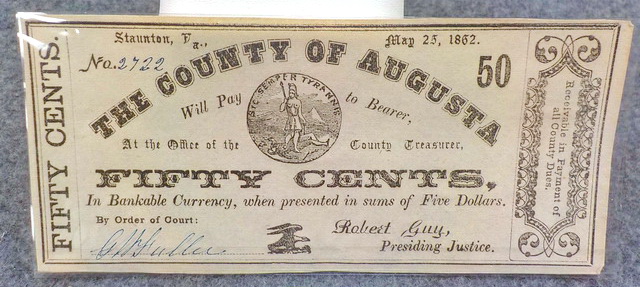 Staunton, Va., May 25, 1862.
No. 2722
THE COUNTY OF AUGUSTA
50
SIC SEMPER TYRANNIS
Will Pay to Bearer,
At the Office of the County Treasurer,
FIFTY CENTS,
In Bankable Currency, when presented in sums of Five Dollars.
By Order of Court:
Robert Guy,
Presiding Justice.
FIFTY CENTS.
Receivable in Payment of
all County Dues.